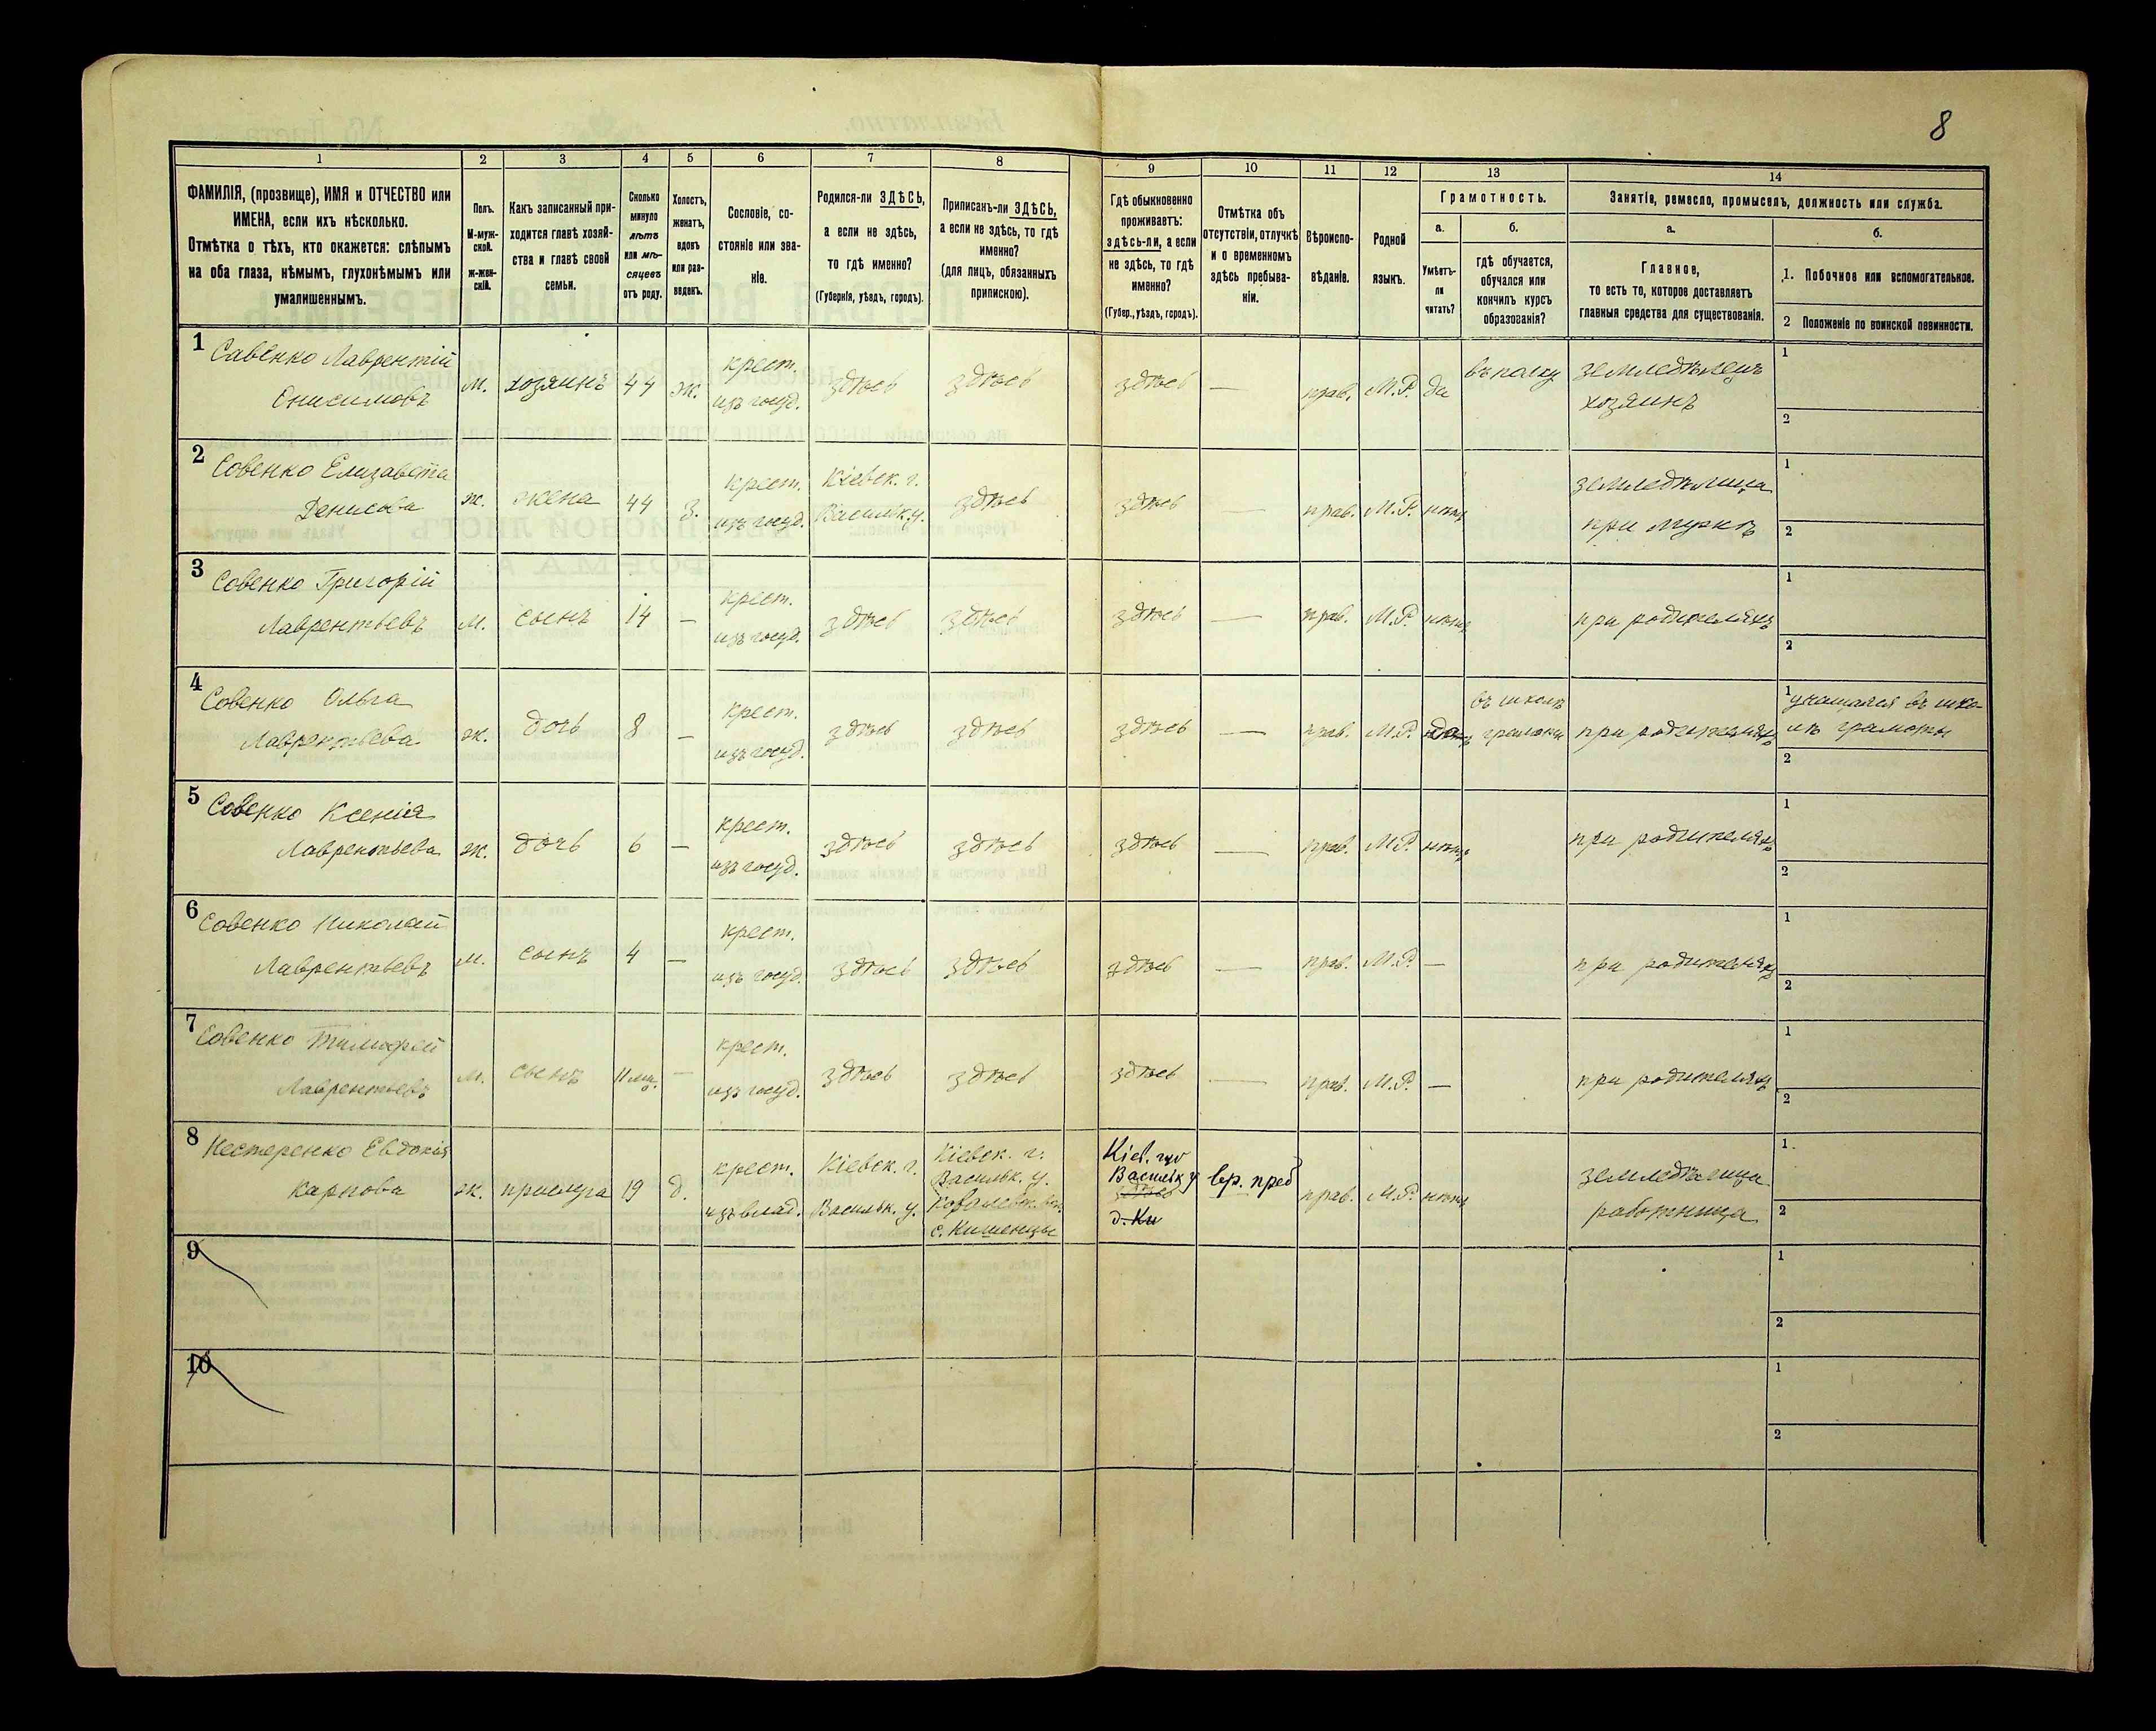 8
1 2 3 4 5 6 7 8 9 10 11 12 13 14
ФАМИЛІЯ, (прозвище), ИМЯ и ОТЧЕСТВО или
ИМЕНА, если ихъ нѣсколько.
Отмѣтка о тѣхъ, кто окажется: слѣпымъ
на оба глаза, нѣмымъ, глухонѣмымъ или
умалишеннымъ.
Полъ.
М-муж-
ской.
ж-жен-
скій.
Какъ записанный при-
ходится главѣ хозяй-
ства и главѣ своей
семьи.
Сколько
минуло
лѣтъ
или мѣ-
сяцевъ
отъ роду.
Холостъ,
женатъ,
вдовъ
или раз-
веденъ.
Сословіе, со-
стояніе или зва-
ніе.
Родился-ли ЗДѢСЬ,
а если не здѣсь,
то гдѣ именно?
(Губернія, уѣздъ, городъ).
Приписанъ-ли ЗДѢСЬ,
а если не здѣсь, то гдѣ
именно?
(для лицъ, обязанныхъ
припискою).
Гдѣ обыкновенно
проживаетъ:
здѣсь-ли, а если
не здѣсь, то гдѣ
именно?
(Губер., уѣздъ, городъ).
Отмѣтка объ
отсутствіи, отлучкѣ
и о временномъ
здѣсь пребыва-
ніи.
Вѣроиспо-
вѣданіе.
Родной
языкъ.
Грамотность.
а.
Умѣетъ-
ли
читать?
б.
гдѣ обучается,
обучался или
кончилъ курсъ
образованія?
Занятіе, ремесло, промыселъ, должность или служба.
а.
Главное,
то есть то, которое доставляетъ
главныя средства для существованія.
б.
1. Побочное или вспомогательное.
2 Положеніе по воинской повинности.
1 Савенко Лаврентій
Онисимовъ
м. хозяинъ 44 ж.
крест.
изъ госуд.
здѣсь здѣсь здѣсь — прав. М.Р. да
въ полку
земледѣлецъ
хозяинъ
1
2
2 Совенко Елизавета
Денисова
ж. жена 44 з.
крест.
изъ госуд.
Кіевск. г.
Васильк. у.
здѣсь здѣсь — прав. М.Р. нѣтъ
земледѣлица
при мужѣ
1
2
3 Совенко Григорій
Лаврентьевъ
м. сынъ 14 —
крест.
изъ госуд.
здѣсь здѣсь здѣсь — прав. М.Р. нѣтъ
при родителяхъ
1
2
4 Совенко Ольга
Лаврентьева
ж. дочь 8 —
крест.
изъ госуд.
здѣсь здѣсь здѣсь — прав. М.Р. да
въ школѣ
грамоты
при родителяхъ
1 учащаяся въ шко-
лѣ грамоты
2
5 Совенко Ксенія
Лаврентьева
ж. дочь 6 —
крест.
изъ госуд.
здѣсь здѣсь здѣсь — прав. М.Р. нѣтъ
при родителяхъ
1
2
6 Совенко Николай
Лаврентьевъ
м. сынъ 4 —
крест.
изъ госуд.
здѣсь здѣсь здѣсь — прав. М.Р. —
при родителяхъ
1
2
7 Совенко Тимофей
Лаврентьевъ
м. сынъ 11 мц. —
крест.
изъ госуд.
здѣсь здѣсь здѣсь — прав. М.Р. —
при родителяхъ
1
2
8 Нестеренко Евдокія
Карпова
ж. прислуга 19 д.
крест.
изъ влад.
Кіевск. г.
Васильк. у.
Кіевск. г.
Васильк. у.
Ковалевк. вол.
с. Кишенцы
Кіев. губ
Васильк у
здѣсь
д. Ки
вр. преб
прав. М.Р. нѣтъ
земледѣлица
работница
1.
2
9
1
2
10
1
2